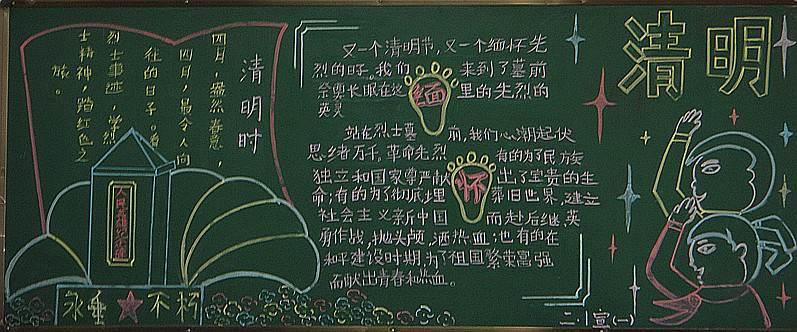 清明
清明时
四月，盎然春意，
四月，最令人向
往的日子。看
烈士事迹，学烈
士精神，踏红色之
旅。
人民英雄纪念碑
永垂★不朽
又一个清明节，又一个缅怀先
烈的日子。我们 来到了墓前
祭奠长眠在这 里的先烈的
英灵
缅
站在烈士墓 前，我们心潮起伏
思绪万千。革命先烈 有的为了民族
独立和国家尊严献 出了宝贵的生
命；有的为了彻底埋 葬旧世界，建立
社会主义新中国 而赴后继，英
勇作战，抛头颅，洒热血；也有的在
和平建设时期，为了祖国繁荣富强
而献出青春和热血。
怀
二·八宣(一)